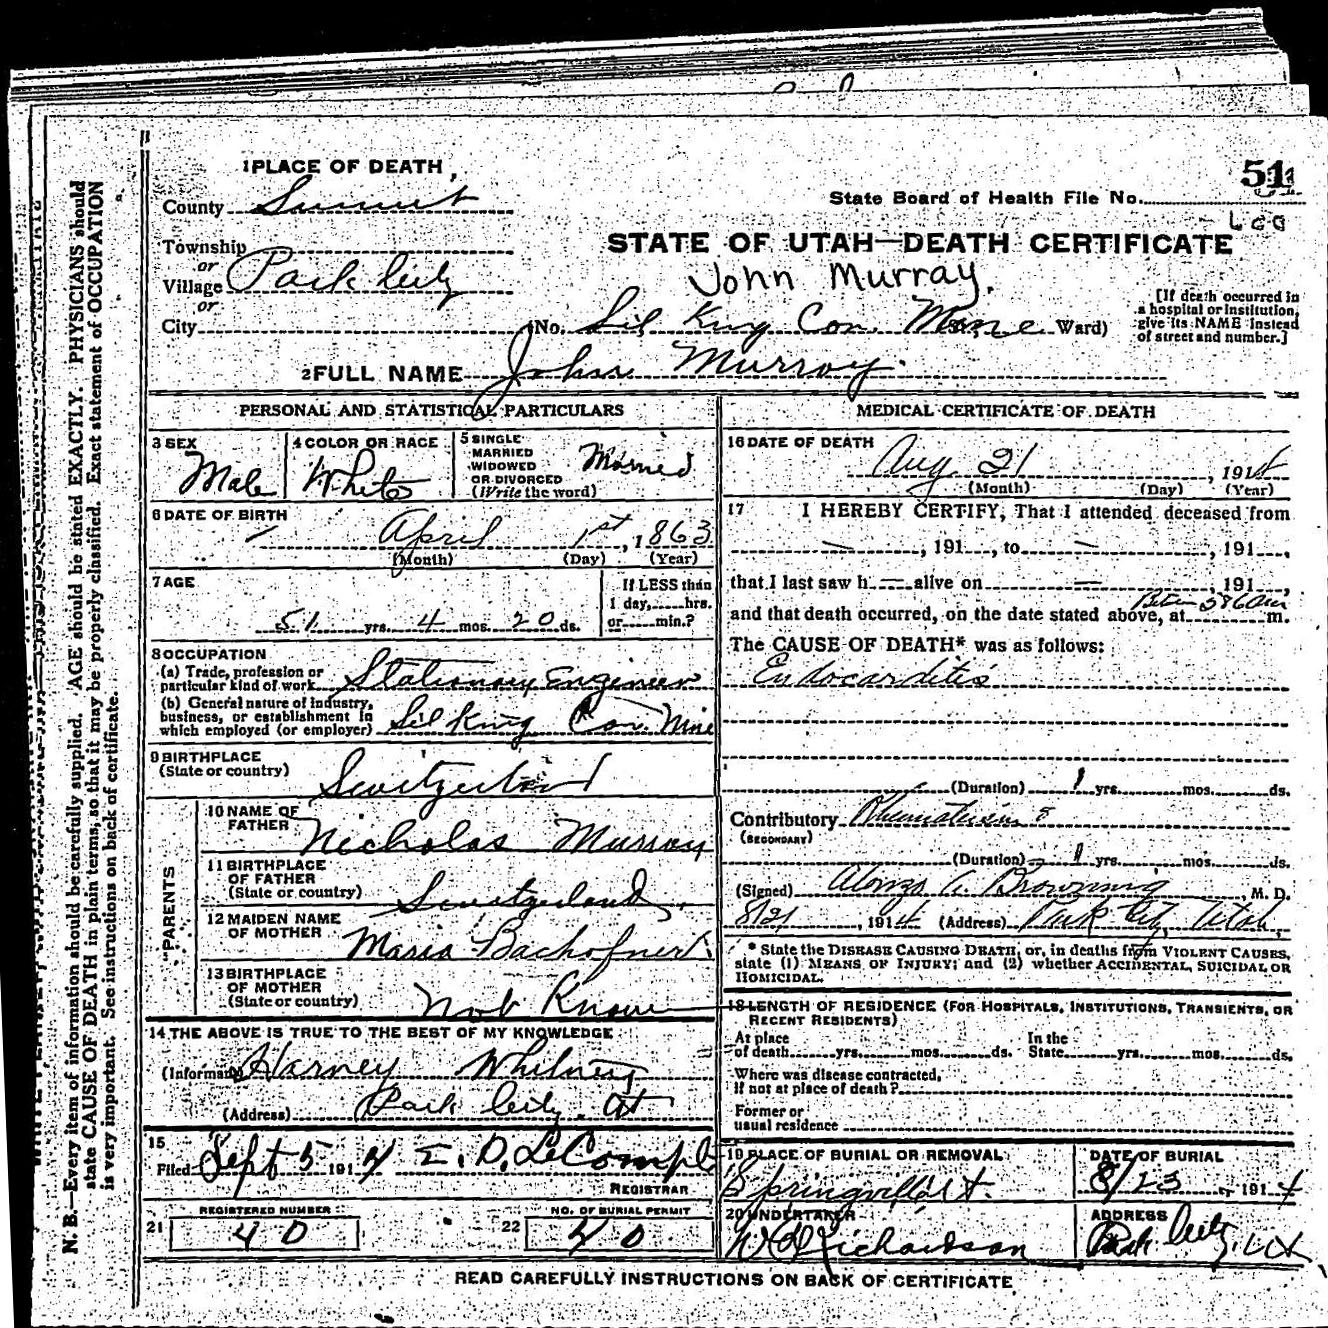 1 PLACE OF DEATH
County Summit
Township
or
Village Park City
or
City
51
State Board of Health File No.
STATE OF UTAH—DEATH CERTIFICATE
John Murray.
(No. Sil King Con. Mine Ward)
[If death occurred in
a hospital or institution,
give its NAME instead
of street and number.]
2 FULL NAME John Murray.
PERSONAL AND STATISTICAL PARTICULARS
3 SEX
Male
4 COLOR OR RACE
White
5 SINGLE
MARRIED
WIDOWED
OR DIVORCED
(Write the word)
Married
6 DATE OF BIRTH
April 1st, 1863
(Month) (Day) (Year)
7 AGE
51 yrs. 4 mos. 20 ds.
If LESS than
1 day, hrs.
or min.?
8 OCCUPATION
(a) Trade, profession or
particular kind of work Stationary Engineer
(b) General nature of industry,
business, or establishment in
which employed (or employer) Sil King Con. Mine
9 BIRTHPLACE
(State or country)
Switzerland
PARENTS
10 NAME OF
FATHER Nicholas Murray
11 BIRTHPLACE
OF FATHER
(State or country) Switzerland.
12 MAIDEN NAME
OF MOTHER Maria Bachofner
13 BIRTHPLACE
OF MOTHER
(State or country) Not Know
14 THE ABOVE IS TRUE TO THE BEST OF MY KNOWLEDGE
(Informant) Harney Whitney
(Address) Park City. Ut
15
Filed Sept 5 1914 E. D. LeCompt
REGISTRAR
21 REGISTERED NUMBER
40
22 NO. OF BURIAL PERMIT
40
MEDICAL CERTIFICATE OF DEATH
16 DATE OF DEATH
Aug. 21, 1914
(Month) (Day) (Year)
17 I HEREBY CERTIFY, That I attended deceased from
—, 191, to —, 191,
that I last saw h — alive on —, 191,
and that death occurred, on the date stated above, at Betw 5&6 am m.
The CAUSE OF DEATH* was as follows:
Endocarditis
(Duration) 1 yrs. mos. ds.
Contributory Rheumatism
(SECONDARY)
(Duration) 1 yrs. mos. ds.
(Signed) Alonzo C. Browning, M. D.
8/21, 1914 (Address) Park City, Utah,
* State the DISEASE CAUSING DEATH, or, in deaths from VIOLENT CAUSES,
state (1) MEANS OF INJURY; and (2) whether ACCIDENTAL, SUICIDAL OR
HOMICIDAL.
18 LENGTH OF RESIDENCE (FOR HOSPITALS, INSTITUTIONS, TRANSIENTS, OR
RECENT RESIDENTS)
At place
of death yrs. mos. ds.
In the
State yrs. mos. ds.
Where was disease contracted,
if not at place of death?
Former or
usual residence
19 PLACE OF BURIAL OR REMOVAL
Springville Ut.
DATE OF BURIAL
8/23, 1914
20 UNDERTAKER
Richardson
ADDRESS
Park City, Ut
READ CAREFULLY INSTRUCTIONS ON BACK OF CERTIFICATE
N. B.—Every item of information should be carefully supplied. AGE should be stated EXACTLY. PHYSICIANS should
state CAUSE OF DEATH in plain terms, so that it may be properly classified. Exact statement of OCCUPATION
is very important. See instructions on back of certificate.